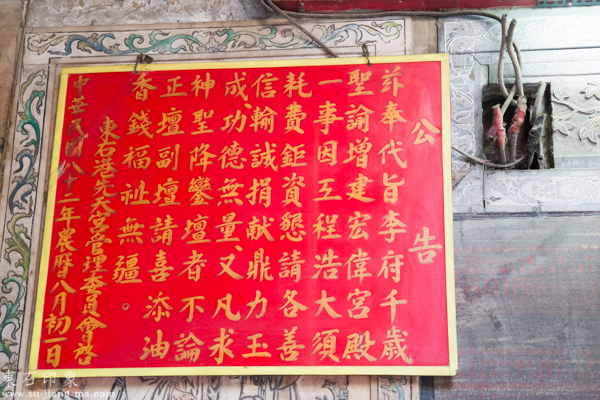 公告
玆奉代旨李府千歲
聖諭增建宏偉宮殿
一事因工程浩大須
耗費鉅資懇請各善
信輸誠捐献鼎力玉
成、功德無量、又凡求
神聖降鑾壇者不論
正壇副壇請喜添油
香錢福祉無疆。
東石港先天宮管理委員會啓
中華民國八十二年農曆八月初一日
東石印象
www.su-jiang-ma.com